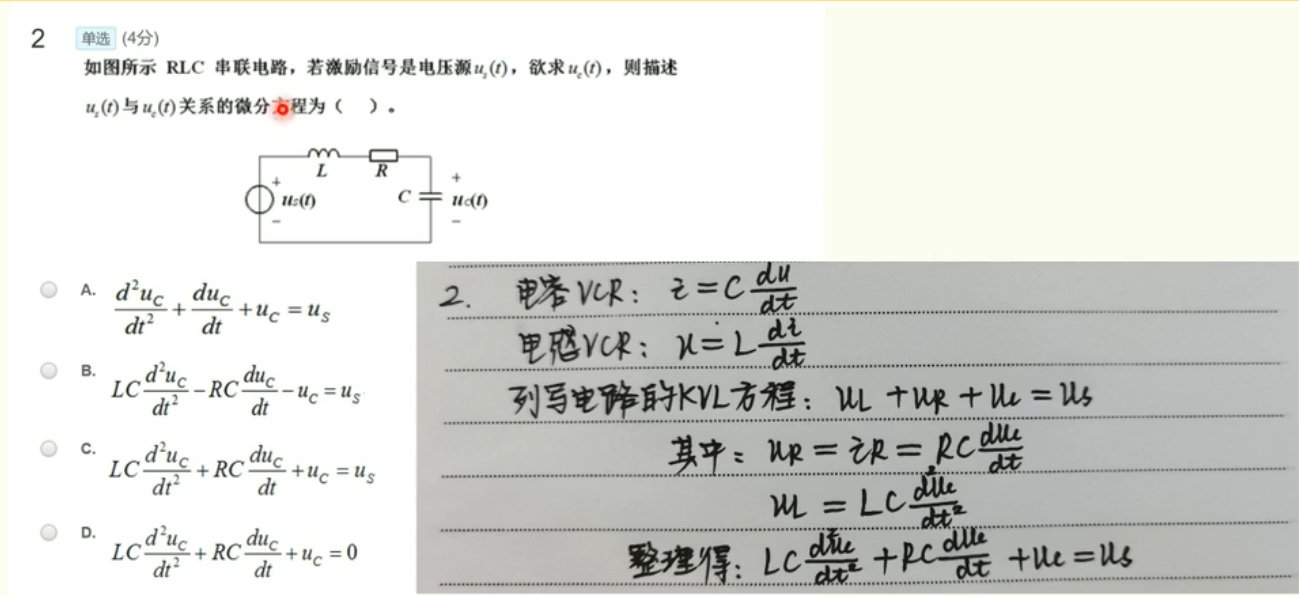 2 单选 (4分)
如图所示 RLC 串联电路，若激励信号是电压源u_s(t)，欲求u_c(t)，则描述
u_s(t)与u_c(t)关系的微分方程为（ ）。
L
R
+
us(t)
−
C
+
uc(t)
−
A. d²u_C/dt² + du_C/dt + u_C = u_S
B. LC d²u_C/dt² − RC du_C/dt − u_C = u_S
C. LC d²u_C/dt² + RC du_C/dt + u_C = u_S
D. LC d²u_C/dt² + RC du_C/dt + u_C = 0
2. 电容VCR: i = C du/dt
电感VCR: u = L di/dt
列写电路的KVL方程: u_L + u_R + u_c = u_s
其中: u_R = iR = RC du_c/dt
u_L = LC d²u_c/dt²
整理得: LC d²u_c/dt² + RC du_c/dt + u_c = u_s